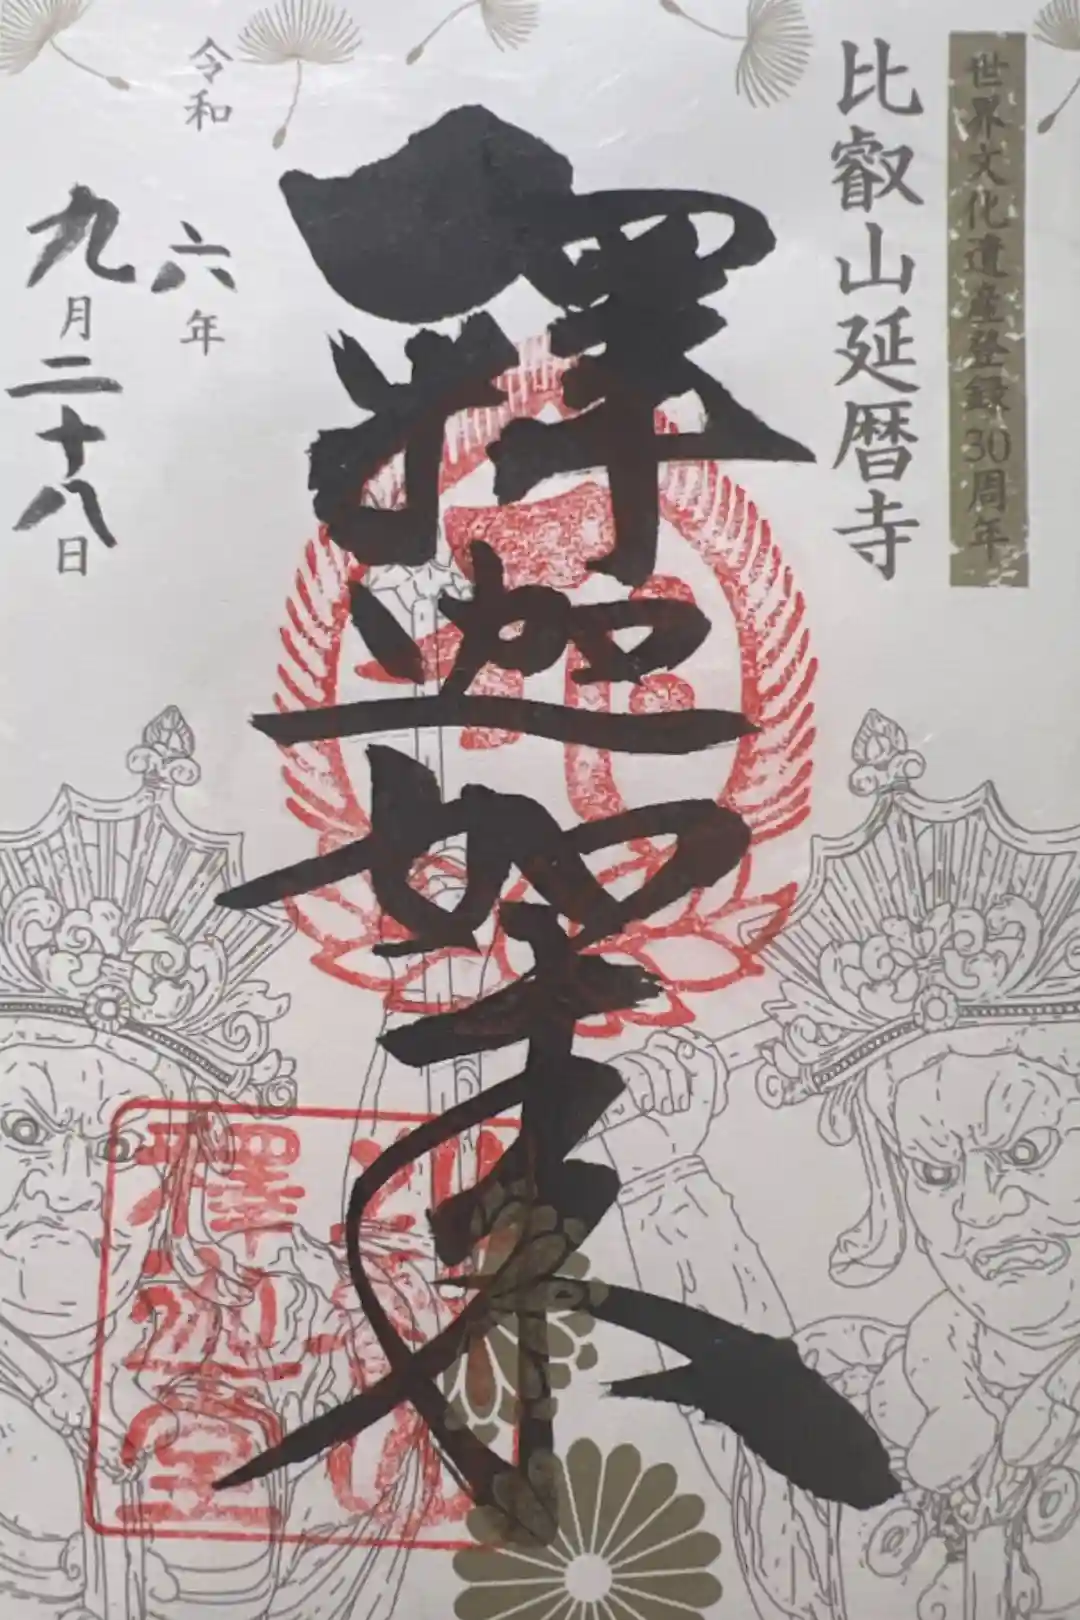 世界文化遺産登録30周年
比叡山延暦寺
釋迦如来
令和
六年
九月二十八日
釋迦堂